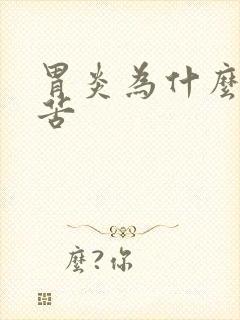 胃炎為什麼
苦
麼?你